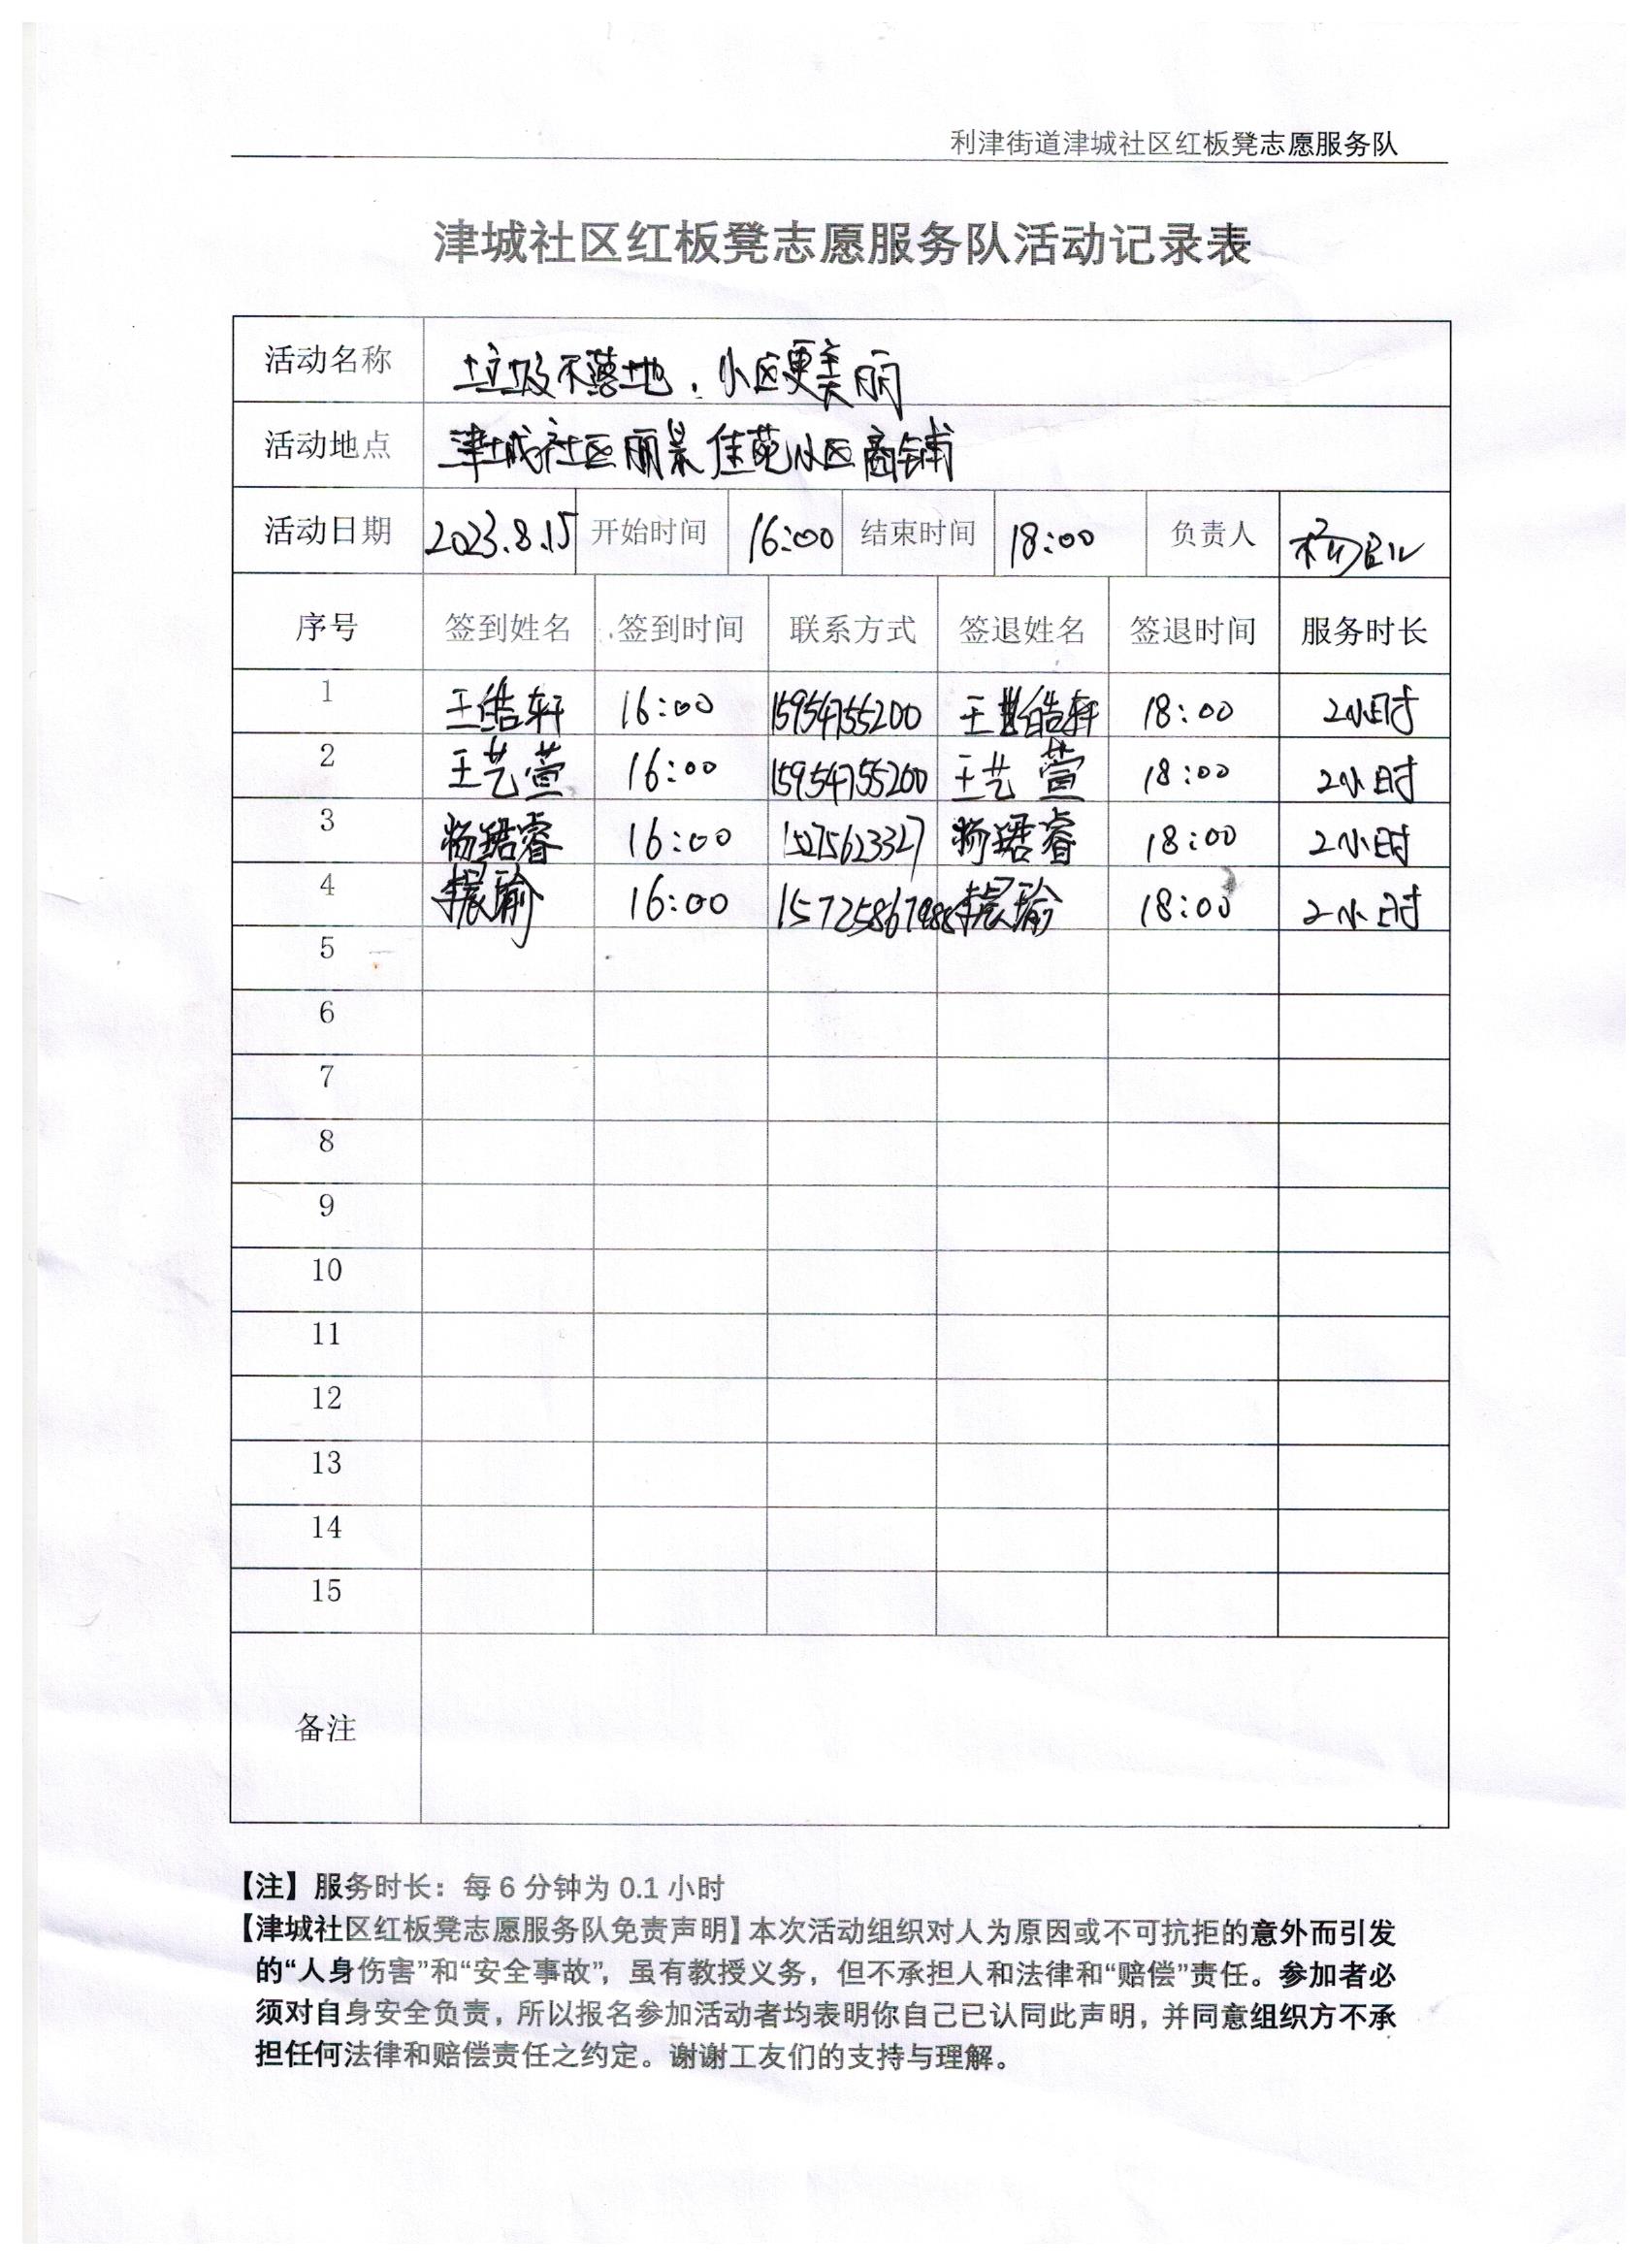 利津街道津城社区红板凳志愿服务队
津城社区红板凳志愿服务队活动记录表
活动名称 垃圾不落地,小区更美丽
活动地点 津城社区丽景佳苑小区商铺
活动日期 2023.8.15 开始时间 16:00 结束时间 18:00 负责人
序号 签到姓名 签到时间 联系方式 签退姓名 签退时间 服务时长
1 王皓轩 16:00 15954755200 王皓轩 18:00 2小时
2 王艺萱 16:00 15954755200 王艺萱 18:00 2小时
3 杨珺睿 16:00 15275623327 杨珺睿 18:00 2小时
4 16:00 18:00 2小时
5
6
7
8
9
10
11
12
13
14
15
备注
【注】服务时长:每6分钟为0.1小时
【津城社区红板凳志愿服务队免责声明】本次活动组织对人为原因或不可抗拒的意外而引发
的“人身伤害”和“安全事故”,虽有教授义务,但不承担人和法律和“赔偿”责任。参加者必
须对自身安全负责,所以报名参加活动者均表明你自己已认同此声明,并同意组织方不承
担任何法律和赔偿责任之约定。谢谢工友们的支持与理解。